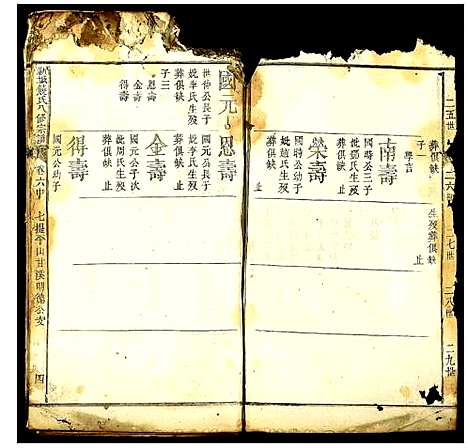 二五世
二六世
二七世
二八世
二九世
葬俱缺
生歿葬俱缺
止
子一
學言
南壽
國時公三子
妣鄧氏生歿
葬俱缺
止
榮壽
國聘公幼子
妣趙氏生歿
葬俱缺
止
國元
世仲公長子
妣李氏生歿
葬俱缺
子三
恩壽
金壽
得壽
恩壽
國元公長子
妣李氏生歿
葬俱缺
止
金壽
國元公子次
妣周氏生歿
葬俱缺
止
得壽
國元公幼子
止
氏八修宗譜
卷六中
七提令山甘溪明德公支
四